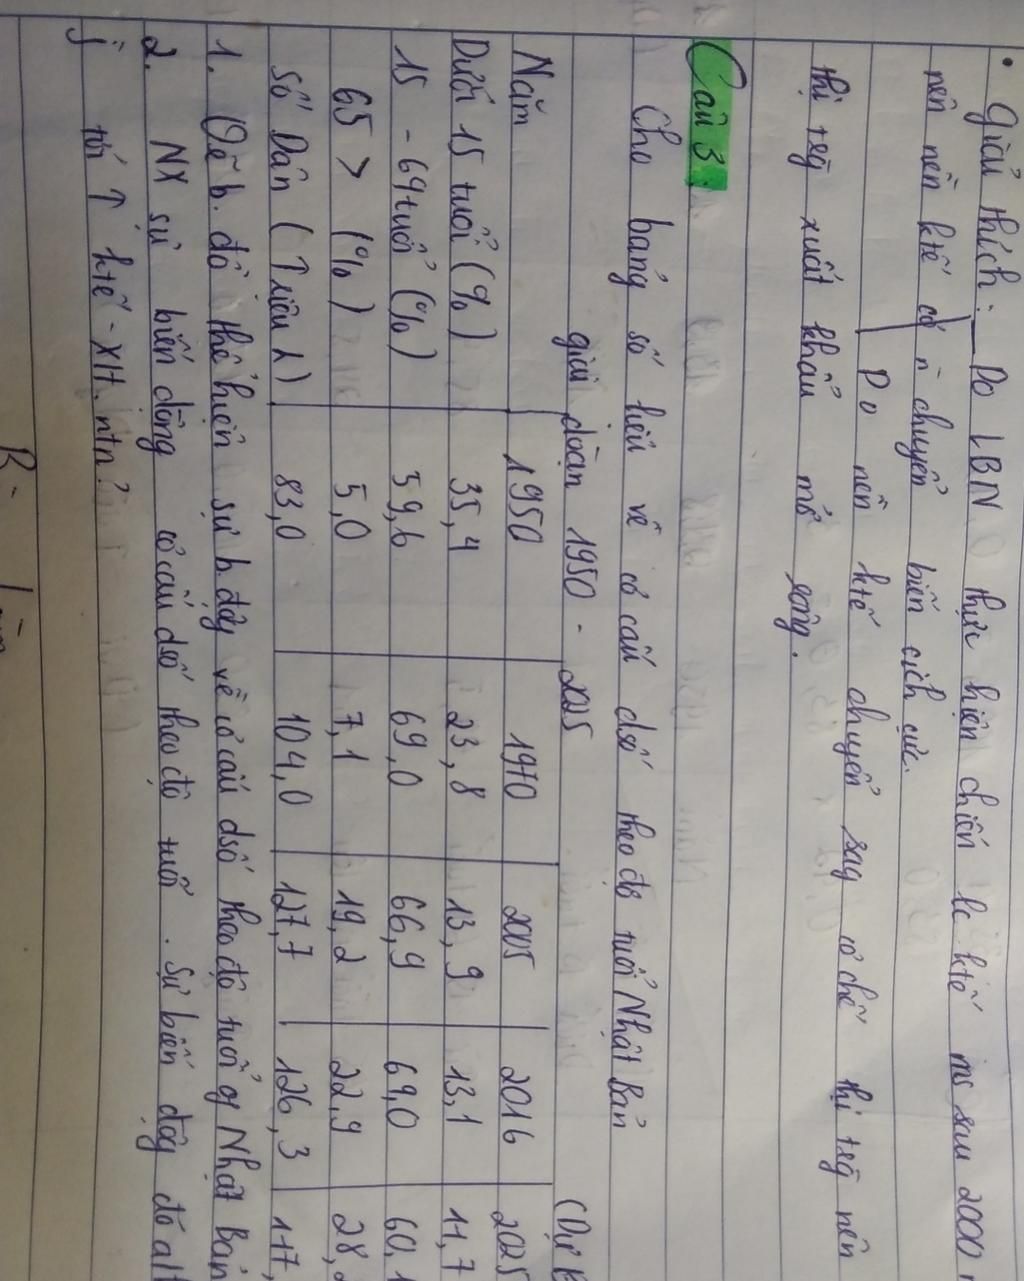 • Giải thích: Do LBN thực hiện chiến lc ktế ms sau 2000
nên nền ktế có n~ chuyển biến tích cực.
Do nền ktế chuyển sag cơ chế thị trg nên
thị trg xuất khẩu mở rộng.
Câu 3:
Cho bảng số liệu về cơ cấu dsố theo độ tuổi Nhật Bản
giai đoạn 1950 - 2025
Năm 1950 1970 2005 2016 2025
Dưới 15 tuổi (%) 35,4 23,8 13,9 13,1 11,7
15 - 64 tuổi (%) 59,6 69,0 66,9 64,0 60,1
65 > (%) 5,0 7,1 19,2 22,9 28,
Số Dân (Triệu ) 83,0 104,0 127,7 126,3 117,
1. Vẽ b.đồ thể hiện sự b.độg về cơ cấu dsố theo độ tuổi of Nhật Bản
2. NX sự biến động cơ cấu dsố theo độ tuổi. Sự biến độg đó a
j tới ↑ ktế - XH. ntn?